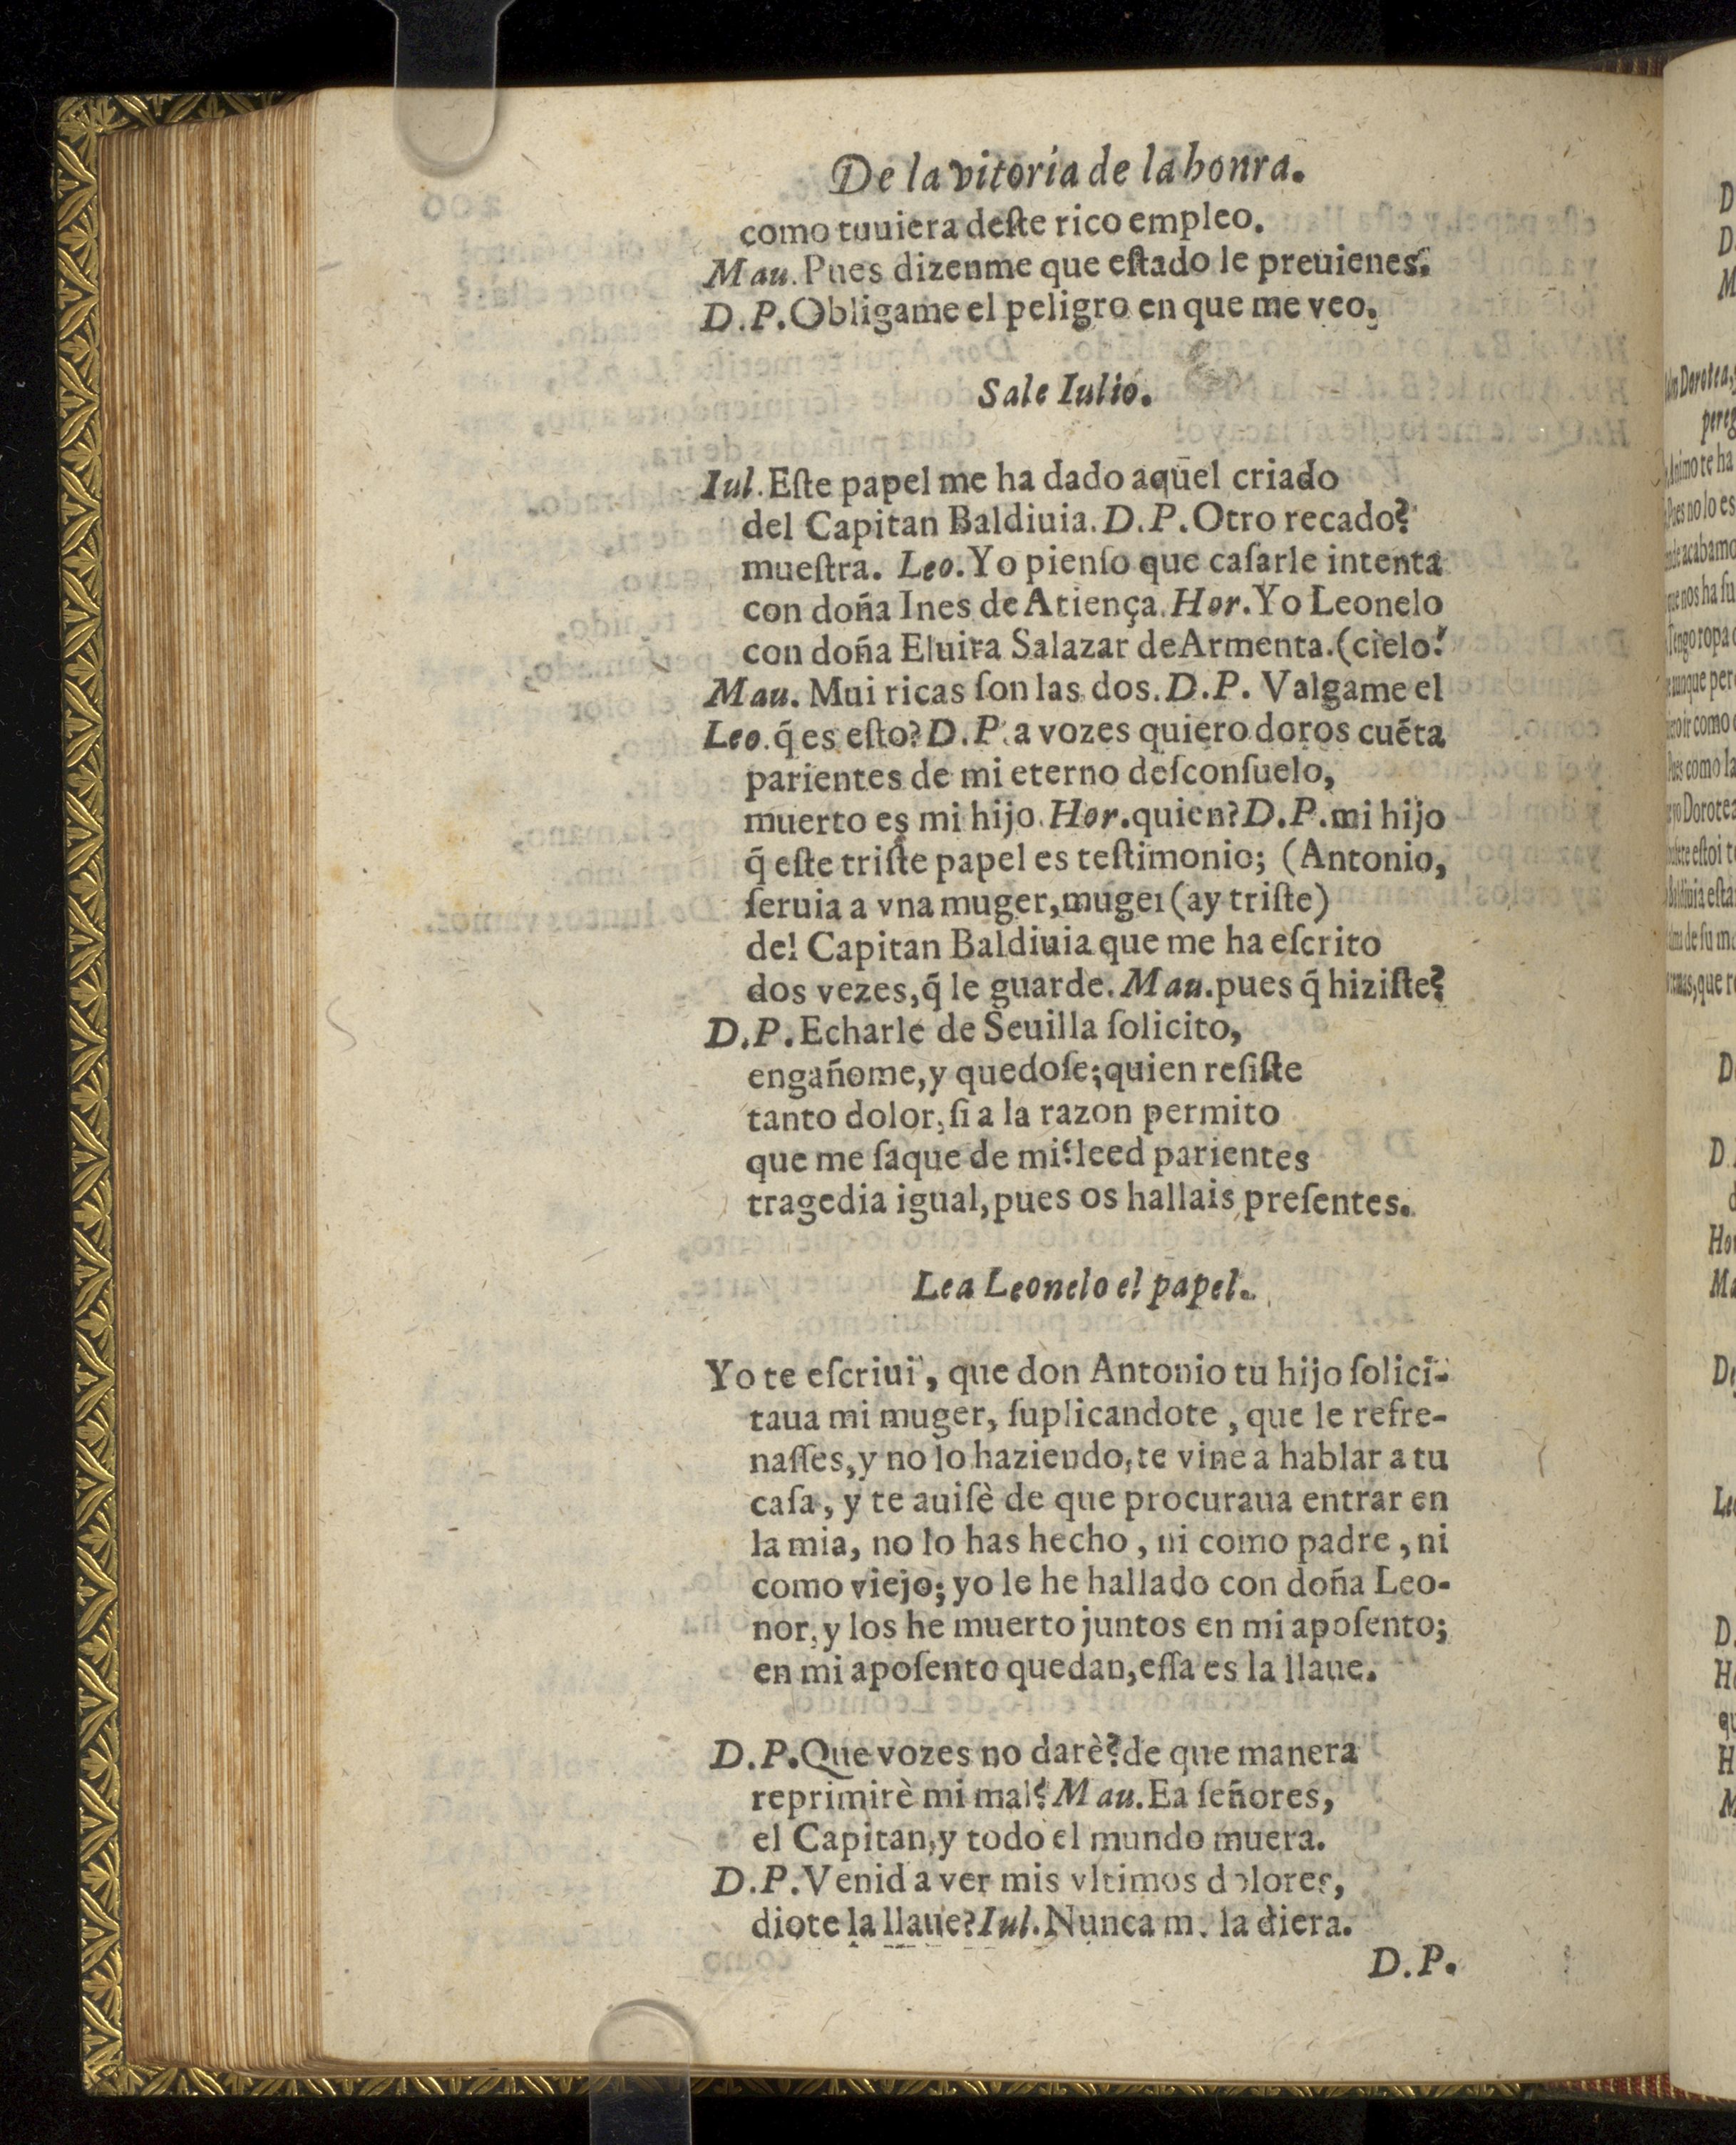 De la vitoria de la honra.
como tuuiera deſte rico empleo.
Mau. Pues dizenme que eſtado le preuienes.
D.P. Obligame el peligro en que me veo.
Sale Iulio.
Iul. Eſte papel me ha dado aquel criado
del Capitan Baldiuia. D.P. Otro recado?
mueſtra. Leo. Yo pienſo que caſarle intenta
con doña Ines de Atiença. Hor. Yo Leonelo
con doña Eluira Salazar de Armenta. (cielo!
Mau. Mui ricas ſon las dos. D.P. Valgame el
Leo. q̃ es eſto? D.P. a vozes quiero doros cuẽta
parientes de mi eterno deſconſuelo,
muerto es mi hijo. Hor. quien? D.P. mi hijo
q̃ eſte triſte papel es teſtimonio; (Antonio,
ſeruia a vna muger, muger (ay triſte)
del Capitan Baldiuia que me ha eſcrito
dos vezes, q̃ le guarde. Mau. pues q̃ hiziſte?
D.P. Echarle de Seuilla ſolicito,
engañome, y quedoſe; quien reſiſte
tanto dolor, ſi a la razon permito
que me ſaque de mi? leed parientes
tragedia igual, pues os hallais preſentes.
Lea Leonelo el papel.
Yo te eſcriui, que don Antonio tu hijo ſolici-
taua mi muger, ſuplicandote, que le refre-
naſſes, y no lo haziendo, te vine a hablar a tu
caſa, y te auiſè de que procuraua entrar en
la mia, no lo has hecho, ni como padre, ni
como viejo; yo le he hallado con doña Leo-
nor, y los he muerto juntos en mi apoſento;
en mi apoſento quedan, eſſa es la llaue.
D.P. Que vozes no darè? de que manera
reprimirè mi mal? Mau. Ea ſeñores,
el Capitan, y todo el mundo muera.
D.P. Venid a ver mis vltimos dolores,
diote la llaue? Iul. Nunca m. la diera.
D.P.